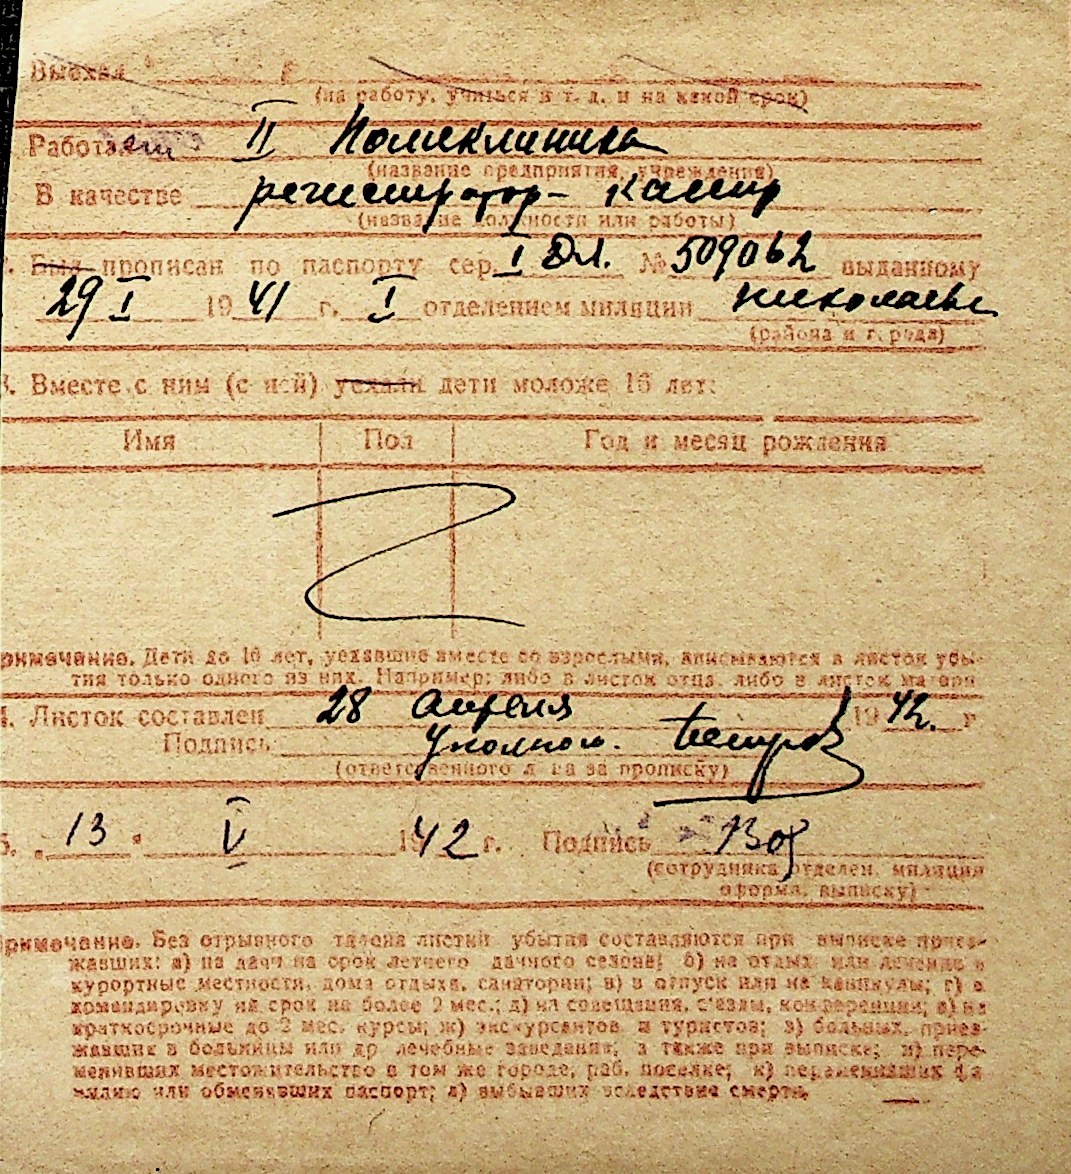 Выехал в
(на работу, учиться и т. д. и на какой срок)
Работает II Поликлиника
(название предприятия, учреждения)
В качестве регистратор-кассир
(название должности или работы)
Был прописан по паспорту сер. I ДЛ. № 509062 выданному
29 I 1941 г. I отделением милиции Николаев
(района и города)
3. Вместе с ним (с ней) уехали дети моложе 16 лет:
Имя Пол Год и месяц рождения
римечание. Дети до 16 лет, уехавшие вместе со взрослыми, вписываются в листок убы-
тия только одного из них. Например: либо в листок отца, либо в листок матери
4. Листок составлен 28 апреля 1942. г
Подпись Уполном.
(ответственного лица за прописку)
5. „13" V 1942 г. Подпись
(сотрудника отделен. милиции
оформл. выписку)
римечание. Без отрывного талона листки убытия составляются при выписке приез-
жавших: а) на дачи на срок летнего дачного сезона; б) на отдых или лечение в
курортные местности, дома отдыха, санатории; в) в отпуск или на каникулы; г) в
командировку на срок не более 2 мес.; д) на совещания, с'езды, конференции; е) на
краткосрочные до 2 мес. курсы; ж) экскурсантов и туристов; з) больных, приез-
жавших в больницы или др лечебные заведения, а также при выписке; и) пере-
менивших местожительство в том же городе, раб. поселке; к) переменивших фа
милию или обменявших паспорт; л) выбывших вследствие смерти.